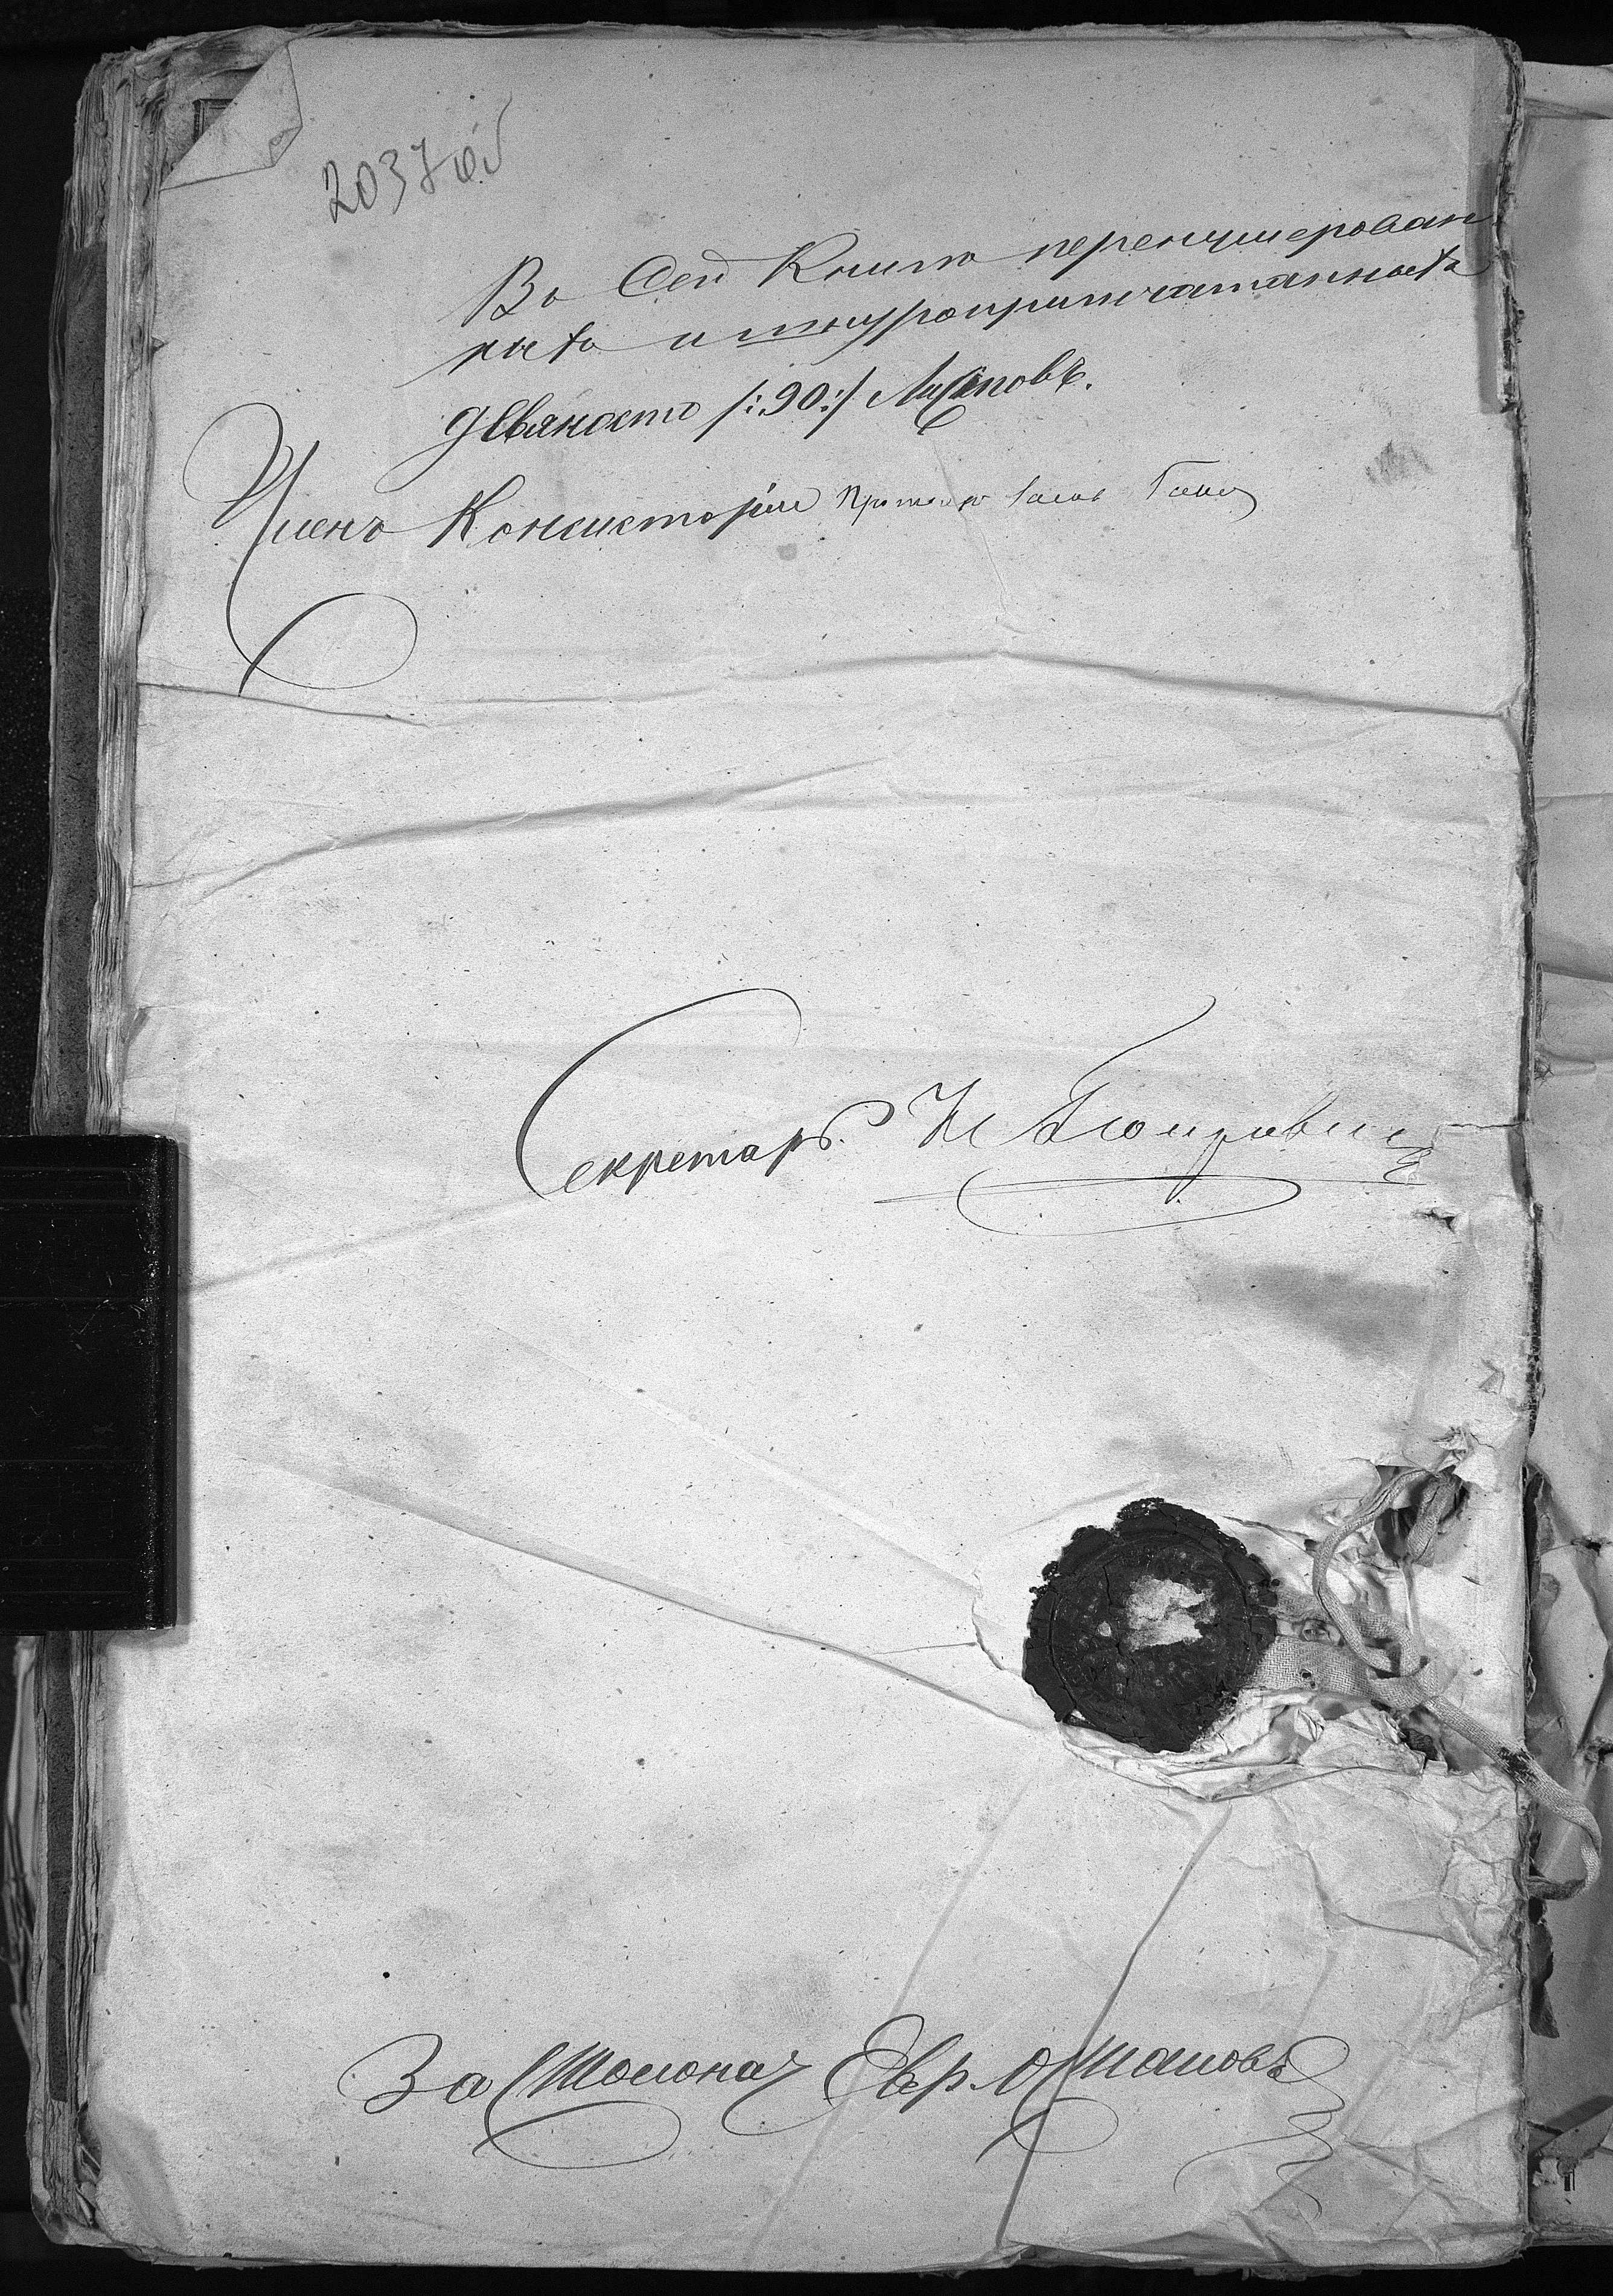 2037 об
Въ сей Книгѣ перенумерован
ныхъ и шнуроприпечатанныхъ
девяносто /:90:/ Листовъ.
Членъ Консисторіи
Секретарь
За Столонач. Евр. Осиповъ